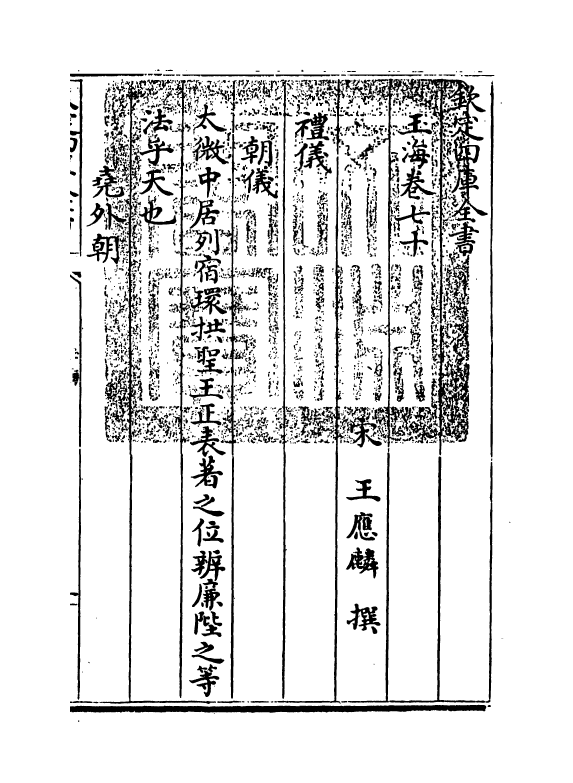 欽定四庫全書
玉海卷七十
宋 王應麟 撰
禮儀
朝儀
太微中居列宿環拱聖王正表著之位辨廉陛之等
法乎天也
堯外朝